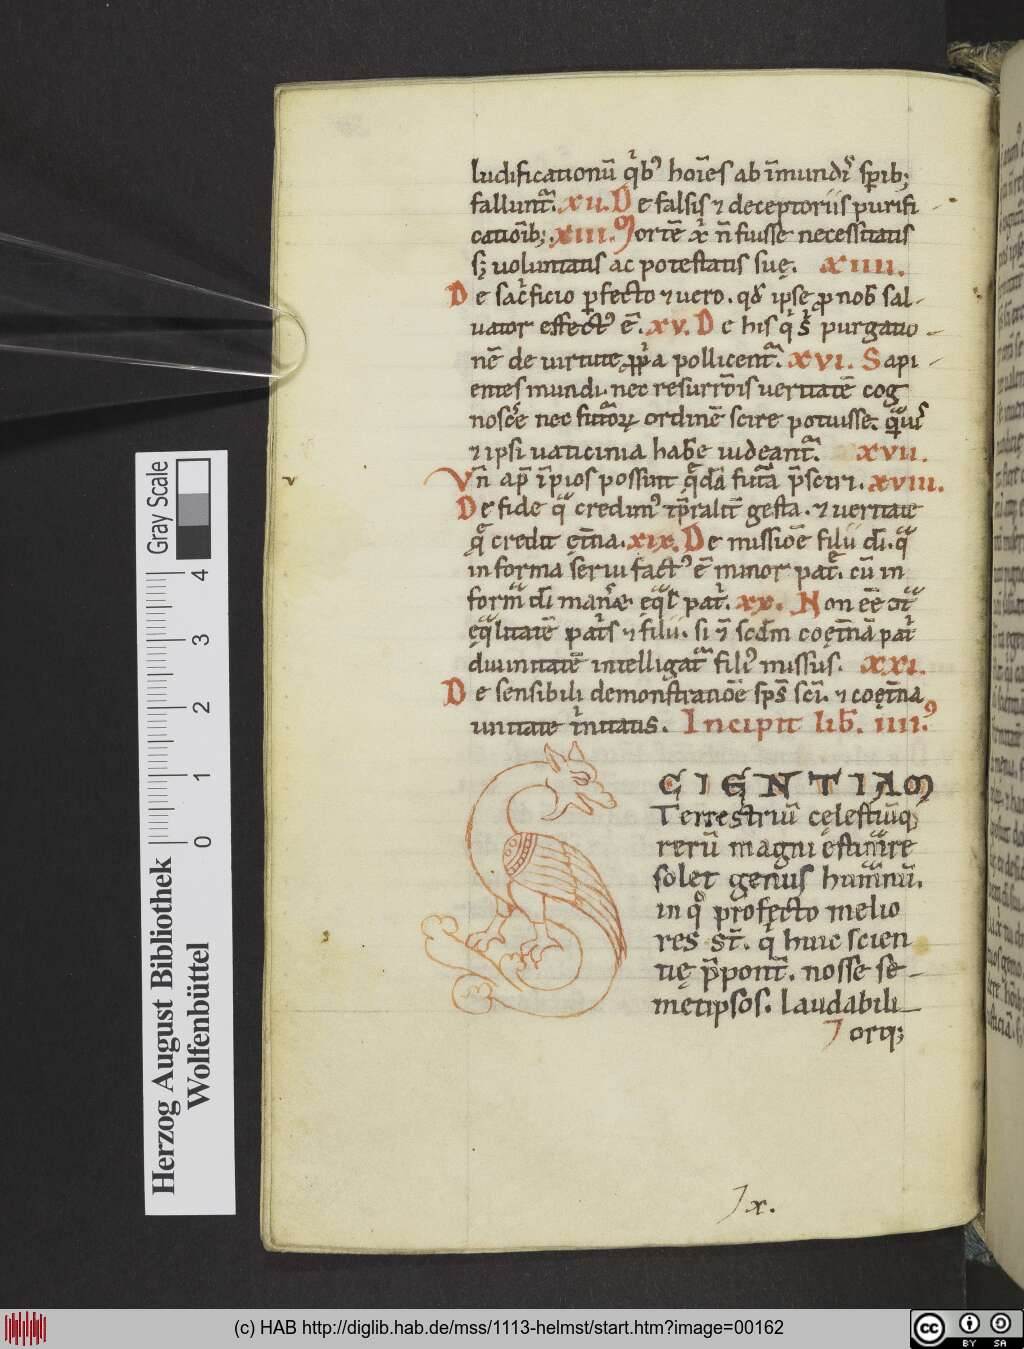 ludificationū q̇bꝰ hoīes ab īmundiˢ spirib;
fallunt᷑. XII. De falsis ⁊ deceptoriis purifi
catioīb;. XIII. Mortē xp̄i nō fuisse necessitatis
s; uoluntatis ac potestatis suę. XIIII.
De sacrficio ꝑfecto ⁊ uero. qđ ipse ꝓ nob̄ sal-
uator effectꝰ ē. XV. De his qͥ s̄ purgatio-
nē de uirtute ꝓpͥa pollicent᷑. XVI. Sapi-
entes mundi. nec resurrōis ueritatē cog
nosce nec futōꝝ ordinē scire potuisse. 
⁊ ipsi uaticinia habe uideant᷑. XVII.
Vn̄ ap̄ īpios possint q̄dā futᷓa p̄sciri. XVIII.
De fide qᷓ credimꝰ tp̄ralit̄ gesta. ⁊ ueritate
q̄ credit et̄na. XIX. De missiōe filii dī. qᷓ
in forma serui factꝰ ē minor pat̄. cū in
formᷓ dī manēs eq̄l̄ pat̄. XX. Non eē 
eq̄litatē pat̄s ⁊ filii. si ⁊ scđm coęt̄nā pat̄
diuinitatē intelligat᷑ filiꝰ missus. XXI.
De sensibili demonstratiōe sp̄s sc̄i. ⁊ coęt̄na
unitate t̄nitatis. Incipit lib̄. IIIIꝰ
CIENTIAM
Terrestriū cęlestiūq
rerū magni ęstimᷓre
solet genus humᷓnū.
in qͦ profecto melio
res st̄. qͥ huic scien
tię p̄ponūt. nosse se-
metipsos. laudabili-
orq;
IX.
Herzog August Bibliothek
Wolfenbüttel
Gray Scale
0 1 2 3 4
(c) HAB http://diglib.hab.de/mss/1113-helmst/start.htm?image=00162
cc BY SA